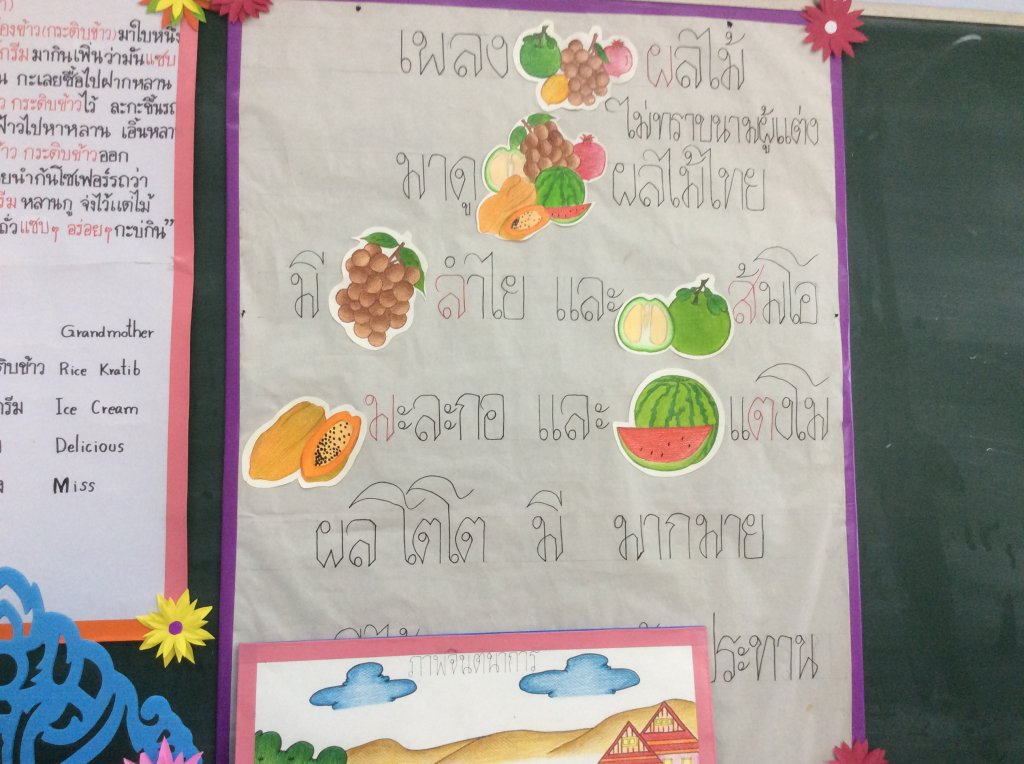 องข้าว(กระติบข้าว)มาใบหนึ่ง
กรีมมากินเพิ่นว่ามันแซบ
กะเลยซื้อไปฝากหลาน
กระติบข้าวไว้ ละกะขึ้นรถ
ไปหาหลาน เอิ้นหลา
กระติบข้าวออก
ยนำกันโซเฟอร์รถว่า
รีม หลานกู จั่งไว้แต่ไม้
ถั่วแซบๆ อร่อยๆกะบ่กิน”
Grandmother
ติบข้าว Rice Kratib
กรีม Ice Cream
Delicious
Miss
เพลง ผลไม้
ไม่ทราบนามผู้แต่ง
มาดู ผลไม้ไทย
มี ลำไย และ ส้มโอ
มะละกอ และ แตงโม
ผลโตโต มี มากมาย
ประทาน
ภาพจินตนาการ